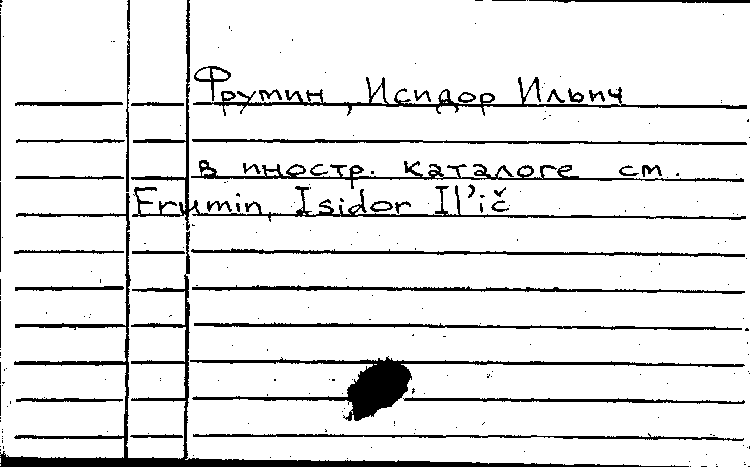 Фрумин, Исидор Ильич
в иностр. каталоге см.
Frumin, Isidor Il'ič